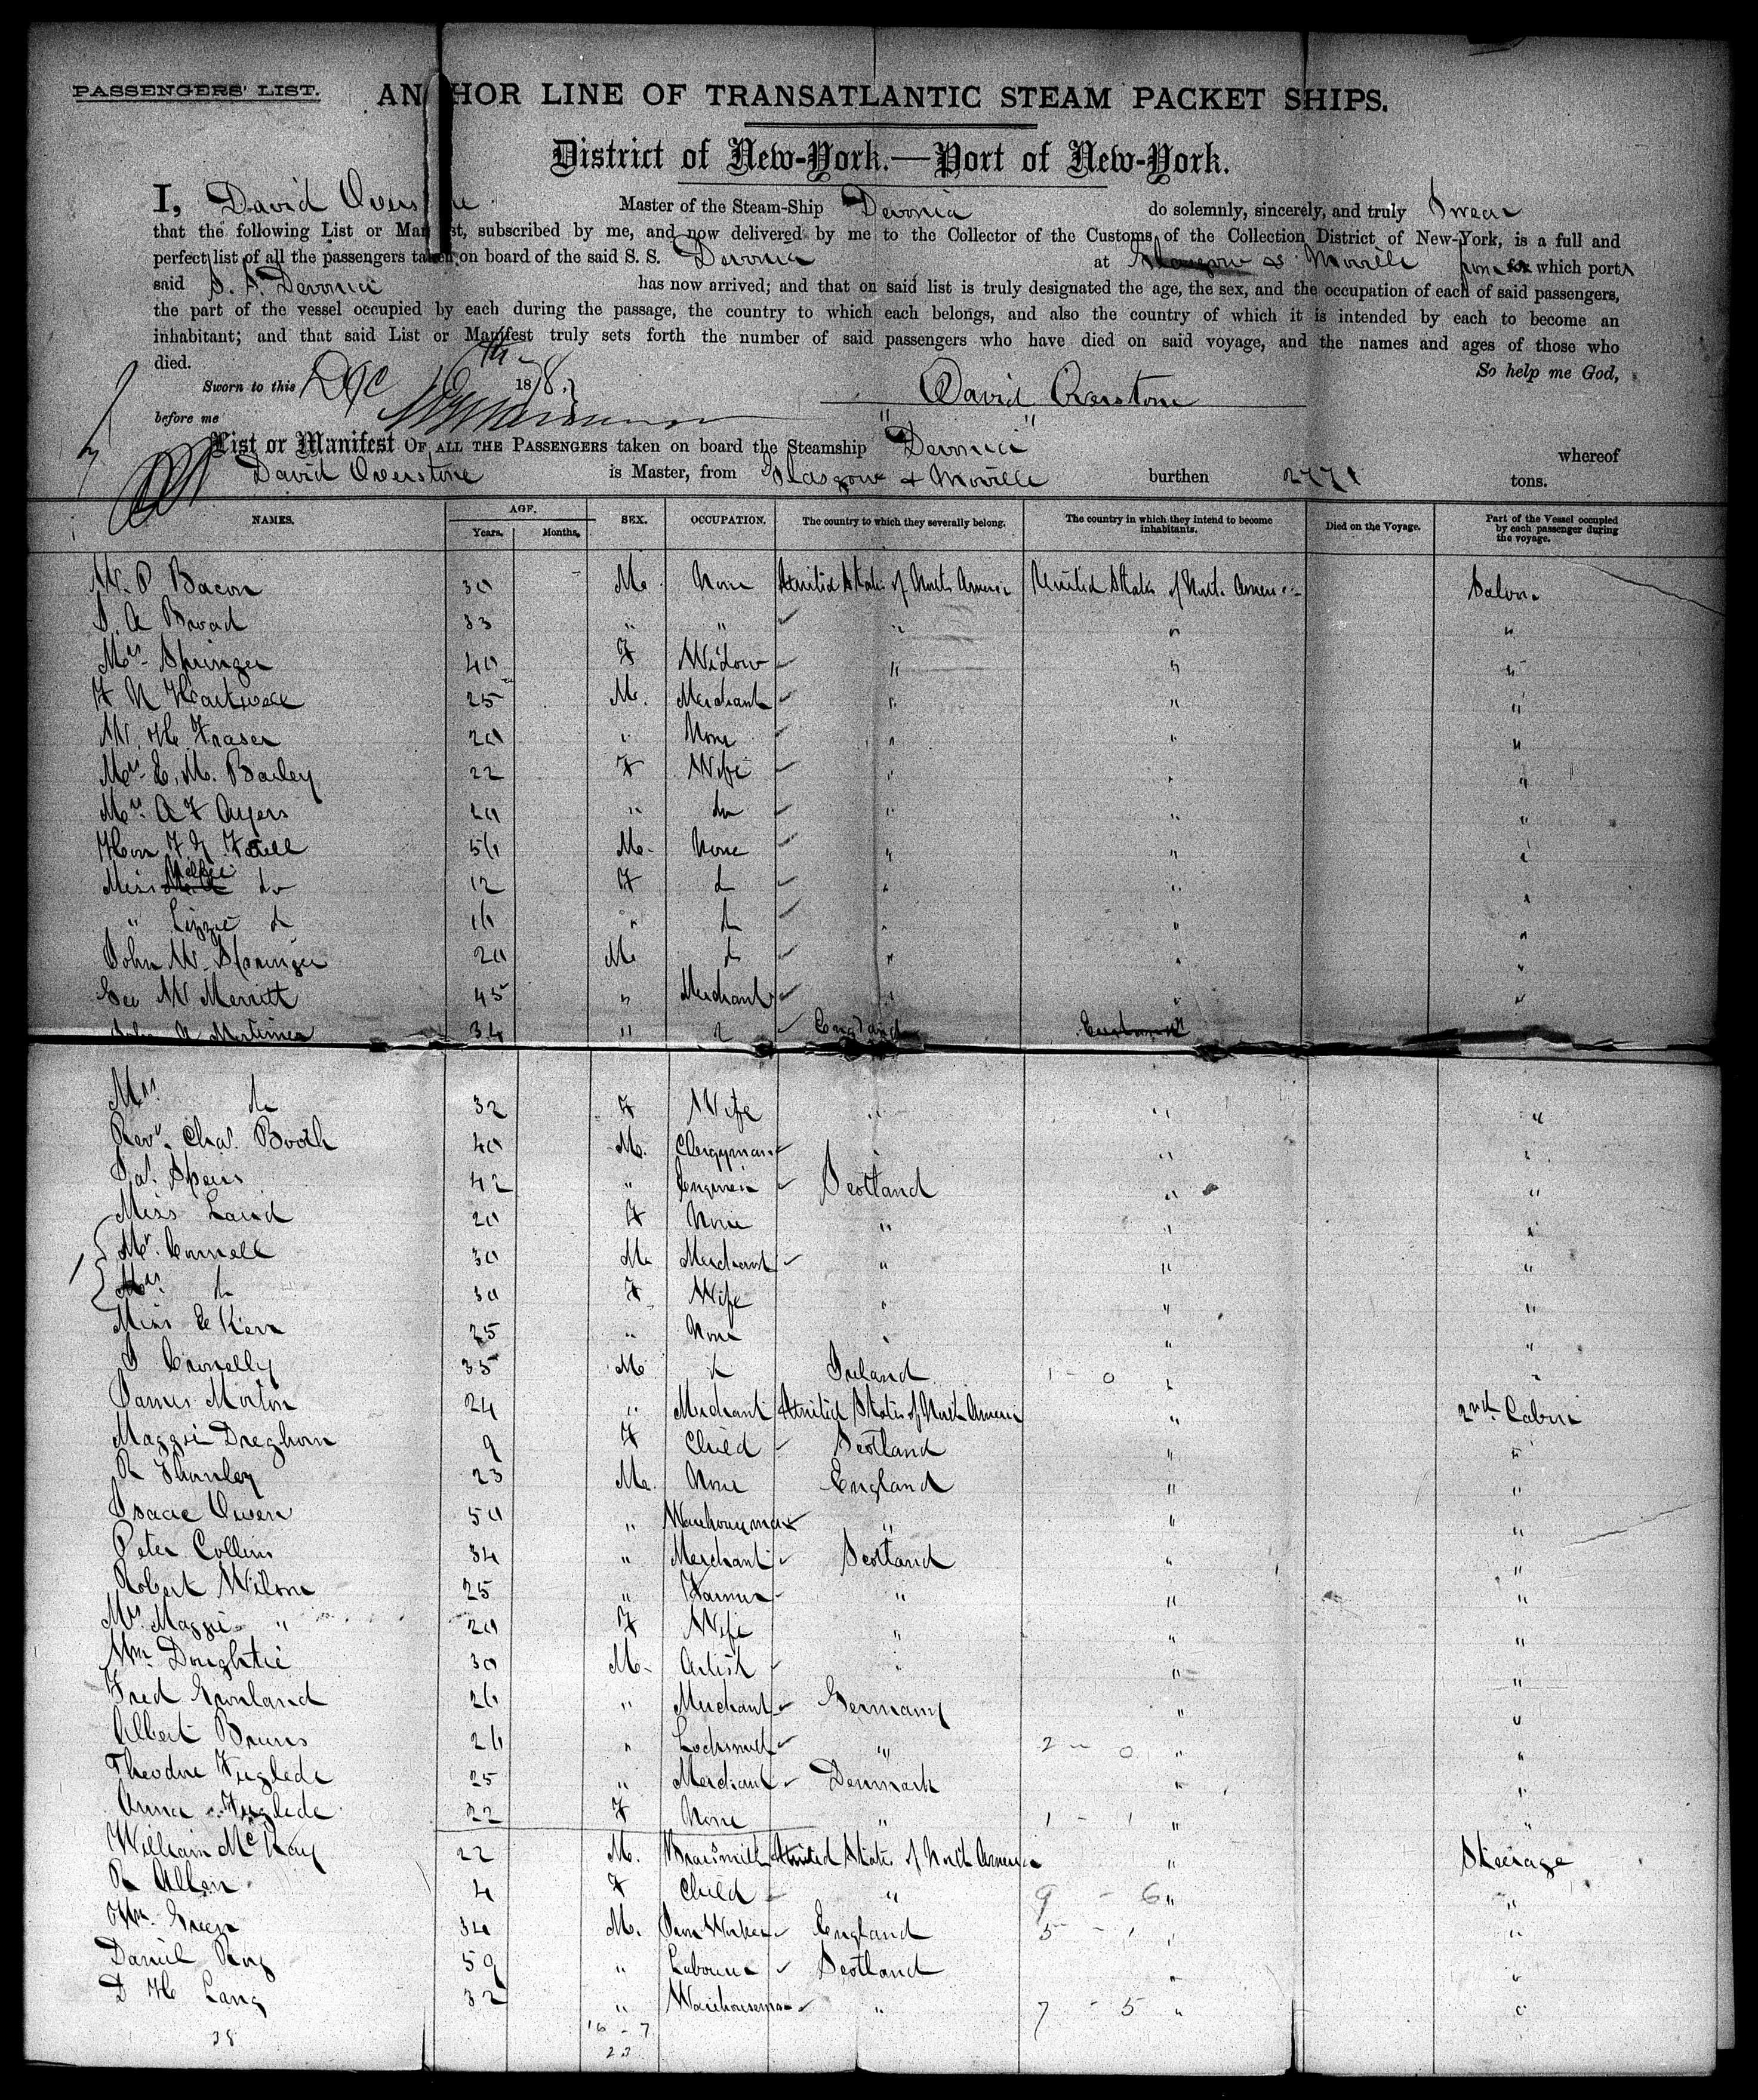 PASSENGERS' LIST.
ANCHOR LINE OF TRANSATLANTIC STEAM PACKET SHIPS.
District of New-York.—Port of New-York.
I, David Overstone Master of the Steam-Ship Devonia do solemnly, sincerely, and truly Swear
that the following List or Manifest, subscribed by me, and now delivered by me to the Collector of the Customs of the Collection District of New-York, is a full and
perfect list of all the passengers taken on board of the said S. S. Devonia at Glasgow & Moville from which port
said S. S. Devonia has now arrived; and that on said list is truly designated the age, the sex, and the occupation of each of said passengers,
the part of the vessel occupied by each during the passage, the country to which each belongs, and also the country of which it is intended by each to become an
inhabitant; and that said List or Manifest truly sets forth the number of said passengers who have died on said voyage, and the names and ages of those who
died. So help me God,
Sworn to this Dec 1878. David Overstone
before me
List or Manifest OF ALL THE PASSENGERS taken on board the Steamship "Devonia" whereof
David Overstone is Master, from Glasgow & Moville burthen 2771 tons.
NAMES. AGE. Years. Months. SEX. OCCUPATION. The country to which they severally belong. The country in which they intend to become inhabitants. Died on the Voyage. Part of the Vessel occupied by each passenger during the voyage.
W. P Bacon 30 M. None United States of North America United States of North America Saloon
S. A Broad 33 " " " " "
Mrs Springer 40 F Widow " " "
F N Hartwell 25 M. Merchant " " "
W. H. Fraser 20 " None " " "
Mrs E. M. Bailey 22 F Wife " " "
Mrs A F Ayers 20 " do " " "
Hon F. M. 56 M. None " " "
Miss Nellie do 12 F do " " "
" Lizzie do 16 " do " " "
John W. Springer 20 M do " " "
Geo W Merritt 45 " Merchant " " "
John A Mortimer 34 " " England
Mrs do 32 F Wife " " "
Revd. Chas. Booth 40 M. Clergyman " " "
Jas. Speirs 42 " Engineer Scotland " "
Miss Laird 20 F None " " "
Mr. Connell 30 M Merchant " " "
Mrs. do 30 F Wife " " "
Miss E Kerr 25 " None " " "
J Connelly 35 M do Ireland 1 - 0 " "
James Morton 24 " Merchant United States of North America " 2nd Cabin
Maggie Dreghorn 9 F Child Scotland " "
R Thornley 23 M. None England " "
Isaac Owen 50 " Warehouseman " " "
Peter Collins 34 " Merchant Scotland " "
Robert Wilson 25 " Farmer " " "
Mrs Maggie " 20 F Wife " " "
Wm. Doughtie 30 M. Artist " " "
Fred Gronland 26 " Merchant Germany " "
Albert Bruns 26 " Locksmith " 2 - 0 " "
Theodore Fuglede 25 " Merchant Denmark " "
Anna Fuglede 22 F None " 1 - 1 " "
William McKay 22 M. Brassmith United States of North America " Steerage
R Allen 4 F Child " 9 - 6 " "
Wm. Green 34 M. Iron Worker England 5 - 1 " "
Daniel Roy 59 " Labourer Scotland " "
D H Lang 32 " Warehouseman " 7 - 5 " "
38 16 - 7
23